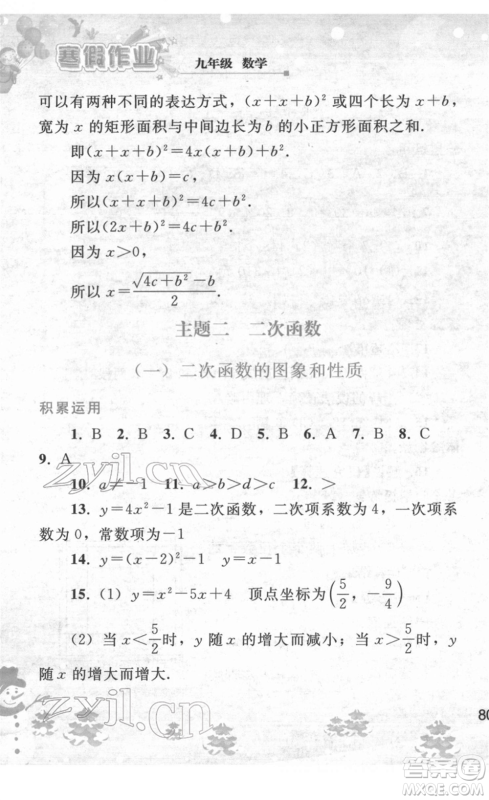 寒假作业
九年级 数学
可以有两种不同的表达方式，(x+x+b)²或四个长为 x+b，
宽为 x 的矩形面积与中间边长为 b 的小正方形面积之和.
即(x+x+b)²=4x(x+b)+b².
因为 x(x+b)=c，
所以(x+x+b)²=4c+b².
所以(2x+b)²=4c+b².
因为 x>0，
所以 x=(√(4c+b²)-b)/2.
主题二 二次函数
（一）二次函数的图象和性质
积累运用
1. B 2. B 3. B 4. C 5. A 6. B 7. B 8. C
9. A
10. a≠-1 11. a>b>d>c 12. >
13. y=4x²-1 是二次函数，二次项系数为 4，一次项系
数为 0，常数项为-1
14. y=(x-2)²-1 y=x-1
15.（1）y=x²-5x+4 顶点坐标为(5/2，-9/4)
（2）当 x<5/2时，y 随 x 的增大而减小；当 x>5/2时，y
随 x 的增大而增大.
zyjl.cn
zyjl.cn
80
答案圈
MXQE.COM